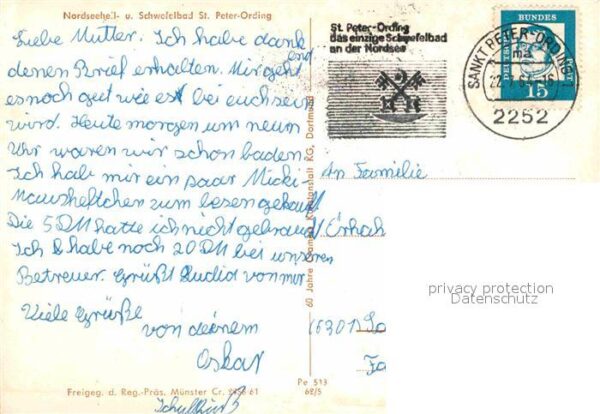 Nordseeheil- u. Schwefelbad St. Peter-Ording
Liebe Mutter. Ich habe dank
denen Brief erhalten. Mir geht
es noch gut wie es bei euch sein
wird. Heute morgen um neun
Uhr waren wir schon baden.
Ich hab mir ein paar Micki-
mausheftchen zum lesen gekauft
Die 5 DM hatte ich nicht gebraucht
Ich habe noch 20 DM bei unseren
Betreuer. Grüßt Claudia von mir.
Viele Grüße
von deinem
Oskar
Freigeg. d. Reg.-Präs. Münster Cr. 2458/61
60 Jahre Cramers Kunstanstalt KG, Dortmund
Pe 513
68/5
St. Peter-Ording
das einzige Schwefelbad
an der Nordsee
SANKT PETER-ORDING
2252
DEUTSCHE BUNDESPOST
15
An Familie
(6301)
privacy protection
Datenschutz